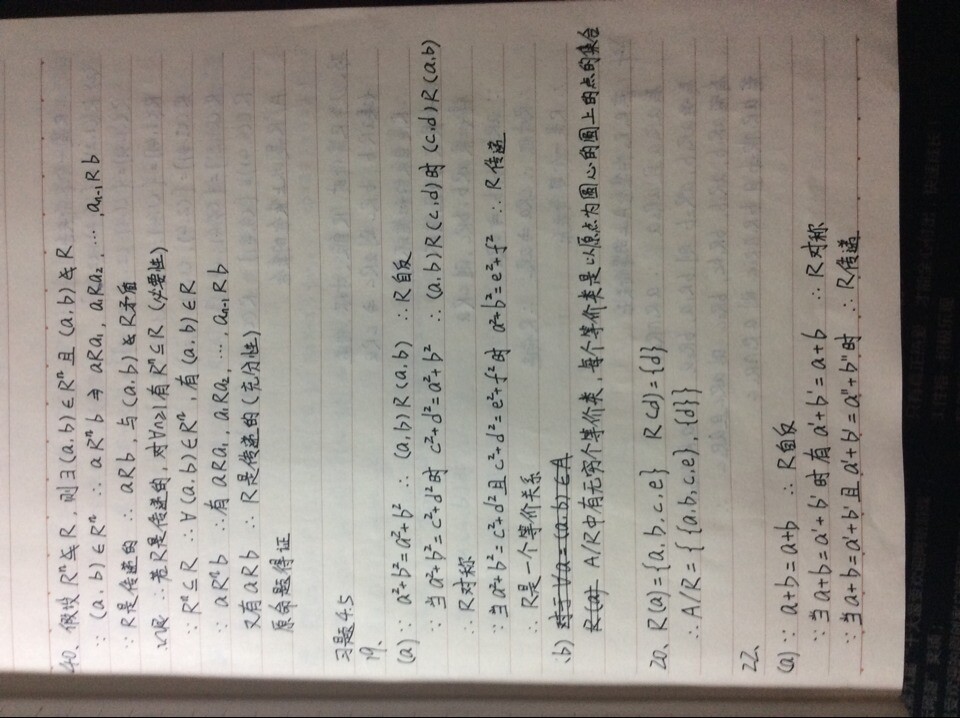 40、假设 Rⁿ ⊈ R，则∃(a,b)∈Rⁿ 且 (a,b)∉R
∵ (a,b)∈Rⁿ ∴ aRⁿb ⇒ aRa₁, a₁Ra₂, …, aₙ₋₁Rb
∵ R是传递的 ∴ aRb, 与(a,b)∉R矛盾
∴若R是传递的, 对∀n≥1有 Rⁿ⊆R (必要性)
∵ Rⁿ⊆R ∴∀(a,b)∈Rⁿ, 有(a,b)∈R
∵ aRⁿb ∴有 aRa₁, a₁Ra₂, …, aₙ₋₁Rb
又有aRb ∴ R是传递的(充分性)
原命题得证
习题4.5
19、
(a) ∵ a²+b²=a²+b² ∴ (a,b)R(a,b) ∴R自反
∵当a²+b²=c²+d²时 c²+d²=a²+b² ∴(a,b)R(c,d)时(c,d)R(a,b)
∴R对称
∵当a²+b²=c²+d²且c²+d²=e²+f²时 a²+b²=e²+f² ∴R传递
∴ R是一个等价关系
(b) 对于∀a=(a,b)∈A
R(a) A/R中有无穷个等价类, 每个等价类是以原点为圆心的圆上的点的集合
20、R(a)={a,b,c,e} R(d)={d}
∴A/R={{a,b,c,e},{d}}
22、
(a) ∵ a+b=a+b ∴ R自反
∵当a+b=a'+b'时有a'+b'=a+b ∴R对称
∵当a+b=a'+b'且a'+b'=a"+b"时 ∴R传递